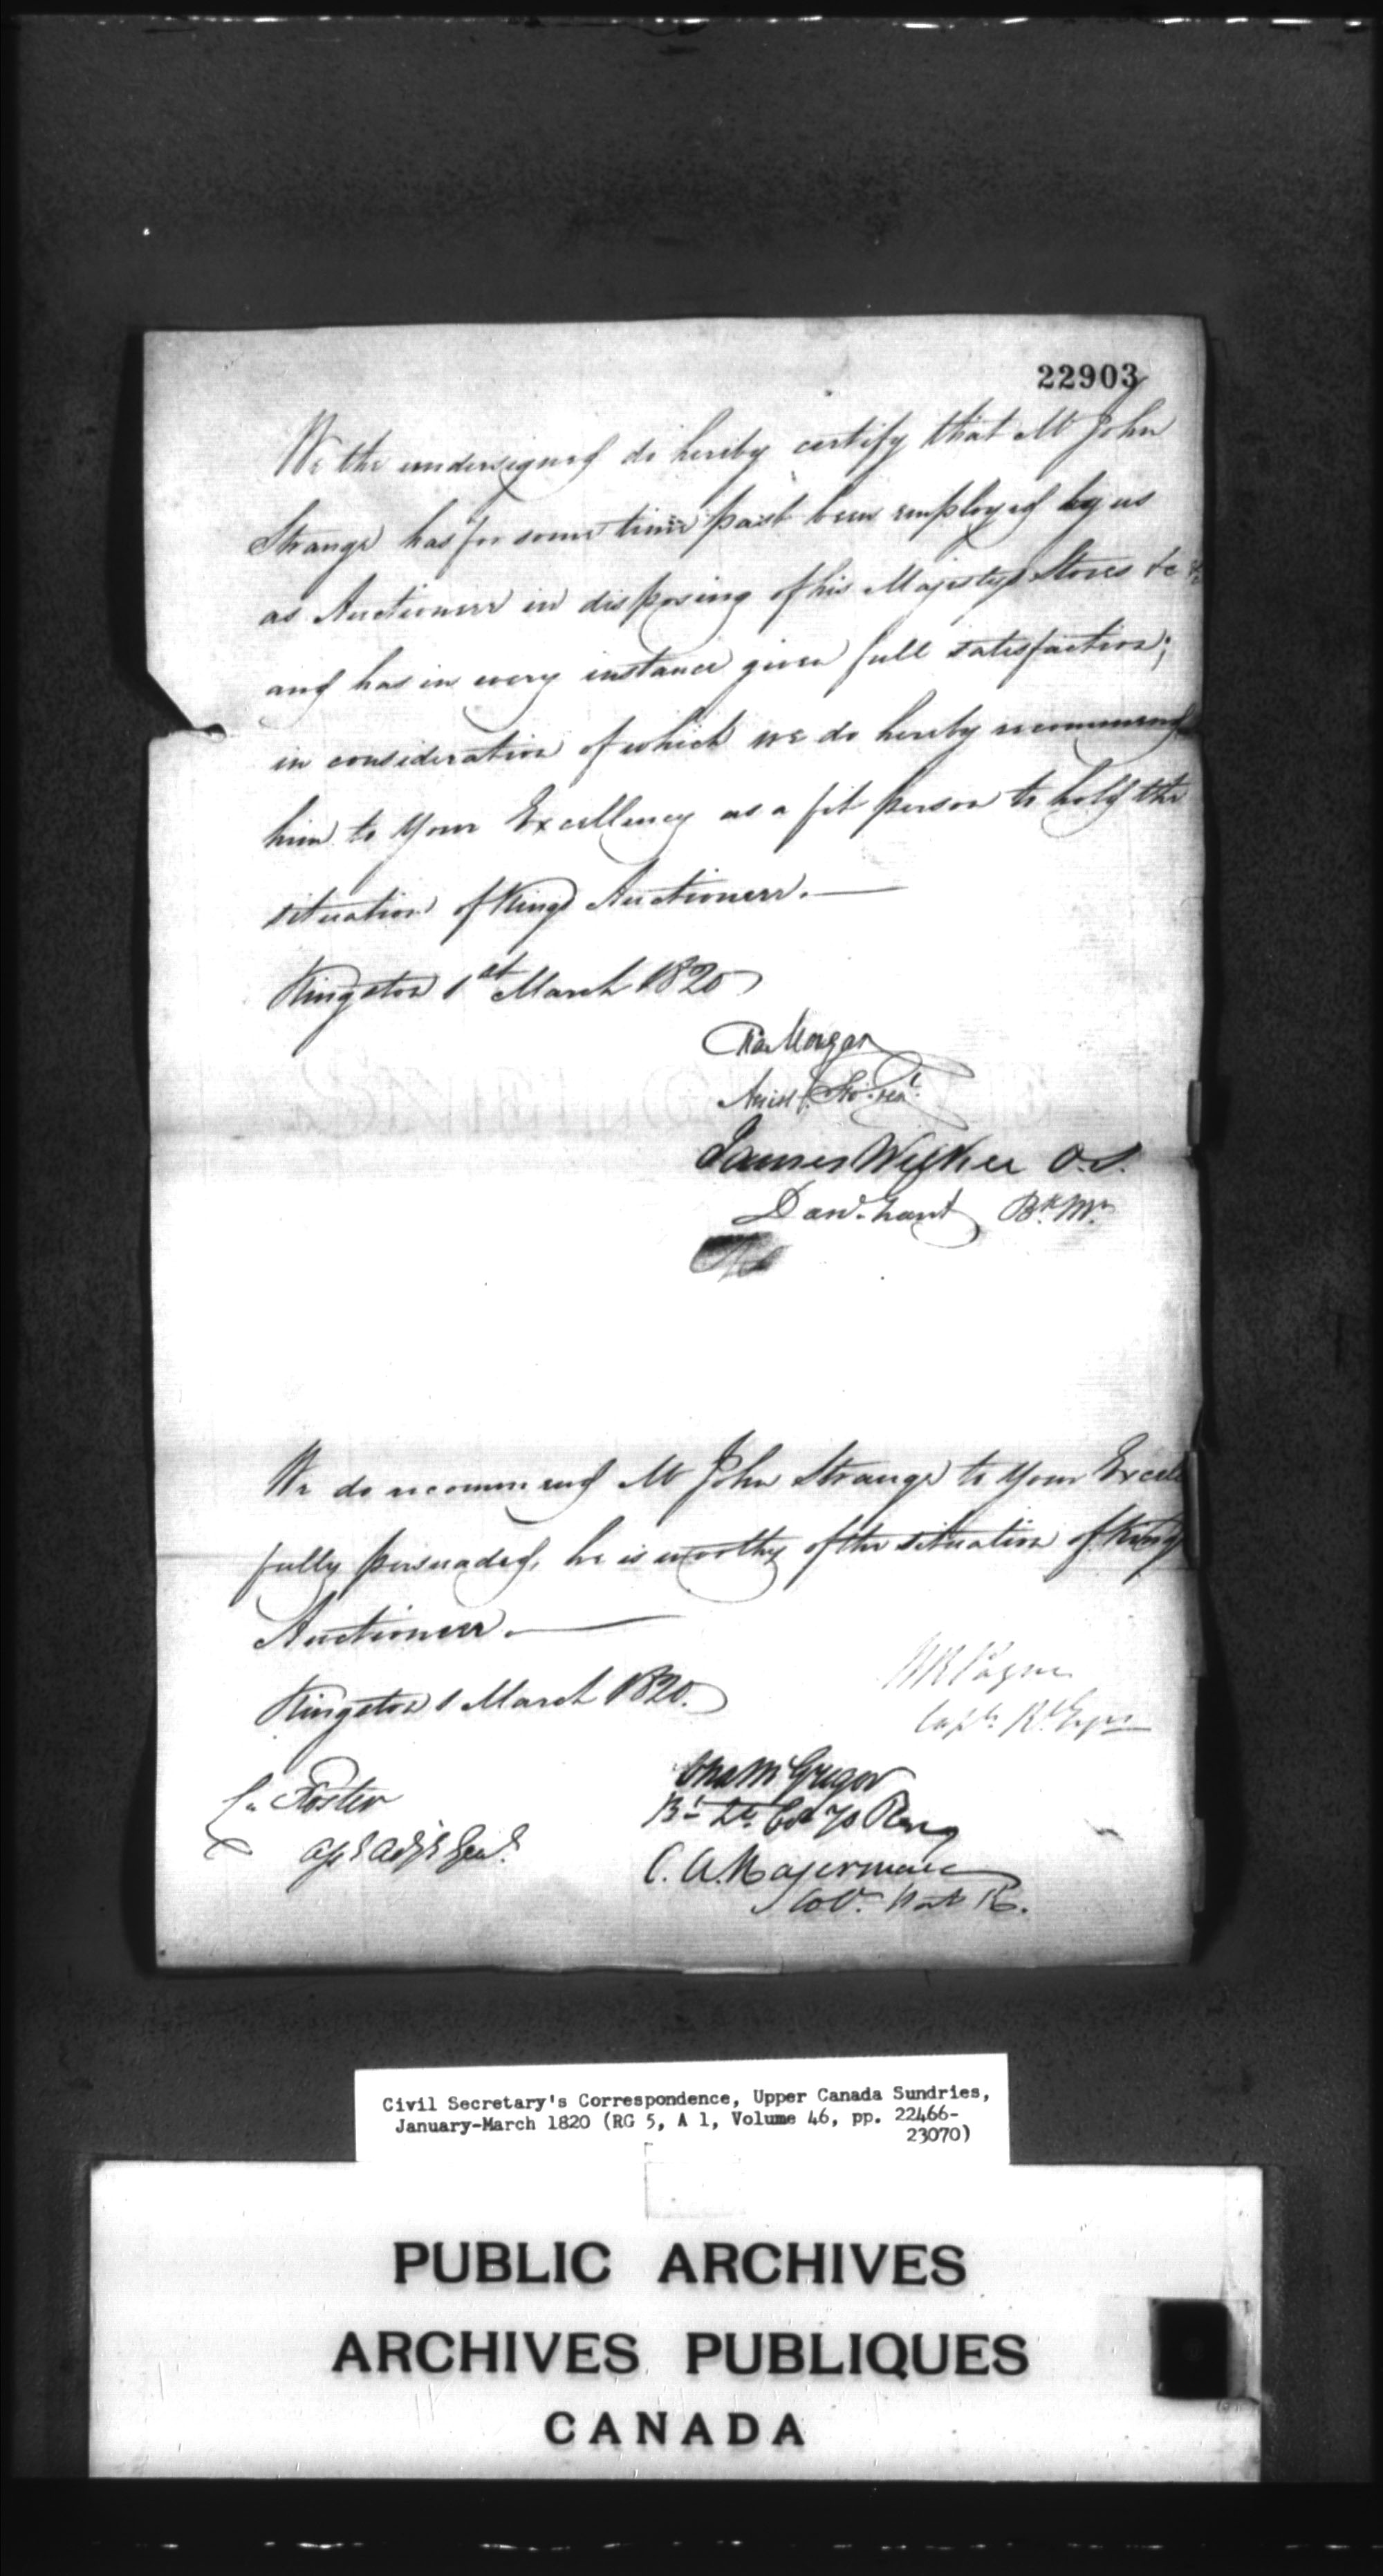 22903
We the undersigned do hereby certify that Mr John
Strange has for some time past been employed by us
as Auctioneer in disposing of his Majestys Stores &c &c
and has in every instance given full satisfaction;
in consideration of which we do hereby recommend
him to Your Excellency as a fit person to hold the
situation of Kings Auctioneer.
Kingston 1st March 1820
Chas Morgan
James Walker O.S.
Davd. Grant Bk. Mr.
We do recommend Mr John Strange to Your Excell
fully persuaded, he is worthy of the situation of Kings
Auctioneer.
Kingston 1 March 1820.
Payne
Capt. Rl. Engrs
C. Foster
McGregor
Bt Lt Col 70 Reg
C. A. Hagerman
Civil Secretary's Correspondence, Upper Canada Sundries,
January-March 1820 (RG 5, A 1, Volume 46, pp. 22466-
23070)
PUBLIC ARCHIVES
ARCHIVES PUBLIQUES
CANADA